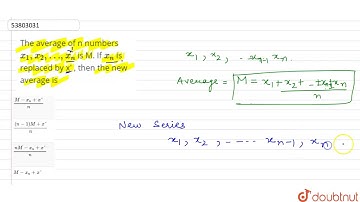 53803031
The average of n numbers
x₁, x₂, ..., xₙ is M. If xₙ is
replaced by x', then the new
average is
M − xₙ + x' / n
(n − 1)M + x' / n
nM − xₙ + x' / n
M − xₙ + x'
x₁, x₂, - - xₙ₋₁ xₙ.
Average = M = x₁ + x₂ + - + xₙ₋₁ + xₙ / n
New Series
x₁, x₂, - - - - xₙ₋₁, xₙ
doubtnut